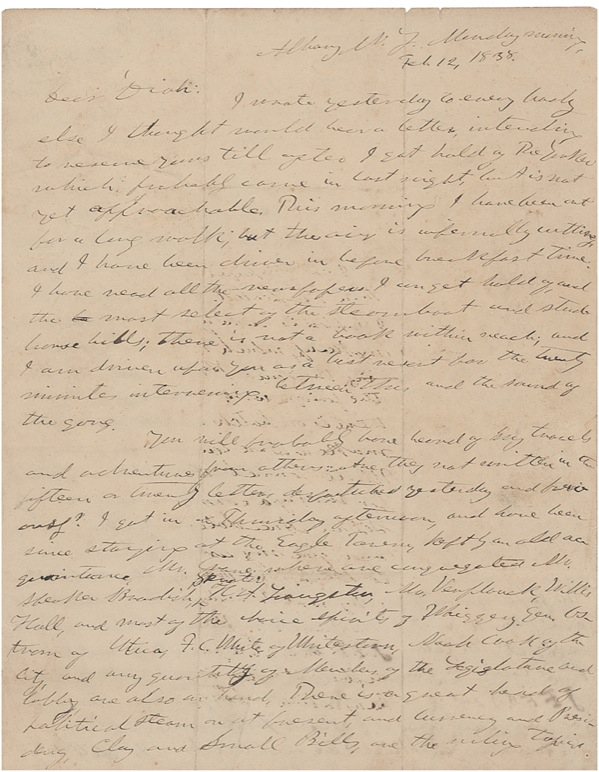 Albany N. Y. Monday morning,
Feb. 12, 1838.
Dear : I wrote yesterday to every body
else I thought would bear a letter, intending
to reserve yours till after I got hold of the
which probably came in last night, but is not
yet approachable. This morning I have been out
for a long walk; but the air is infernally cutting,
and I have been driven in before breakfast time.
I have read all the newspapers I can get hold of and
the most select of the steamboat and stud
horse bills; there is not a book within reach; and
I am driven upon you as a last resort for the twenty
minutes intervening between this and the sound of
the gong.
You will probably have heard of my travels
and adventures from others—are they not written in the
fifteen or twenty letters despatched yesterday and
? I got in Thursday afternoon, and have been
since staying at the Eagle Tavern, kept by an old ac
quaintance, Mr. where are congregated Mr.
Speaker Bradish, Mr. Verplanck, Willis
Hall, and most of the choice spirits of Whiggery, Gen.
of Utica, F. C. White of Whitestown, Noah Cook of the
City, and any quantity of Members of the Legislature and
lobby are also on hand. There is a great head of
political steam on at present, and Currency and
, Clay and Small Bills, are the ruling topics.